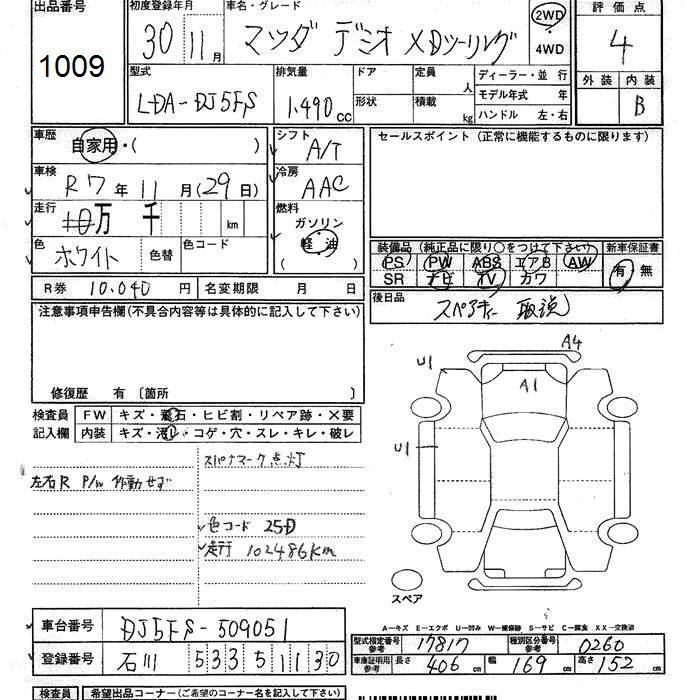 出品番号
1009
初度登録年月
30年 11月
車名・グレード
マツダ デミオ XDツーリング
2WD
4WD
評価点
4
外装 内装
B
型式
LDA-DJ5FS
排気量
1.490cc
ドア
形状
定員 人
積載 kg
ディーラー・並行
モデル年式 年
ハンドル 左・右
車歴
自家用・( )
車検
R7年 11月 (29日)
走行
10万 千 km
色
ホワイト
色替
色コード
シフト
A/T
冷房
AAC
燃料
ガソリン
軽油
( )
セールスポイント (正常に機能するものに限ります)
装備品 (純正品に限り○をつけて下さい)
新車保証書
PS PW ABS エアB AW
SR ナビ TV カワ
有 無
R券 10.040円
名変期限 月 日
後日品
スペアキー 取説
注意事項申告欄(不具合内容等は具体的に記入して下さい)
修復歴 有 〔箇所 〕
検査員
記入欄
FW キズ・飛石・ヒビ割・リペア跡・X要
内装 キズ・汚レ・コゲ・穴・スレ・キレ・破レ
スパナマーク点灯
左右R P/w 作動せず
色コード 25D
走行 102486Km
A4
U1
A1
U1
スペア
A―キズ E―エクボ U―凹み W―補修跡 S―サビ C―腐食 XX―交換済
車台番号
DJ5FS-509051
登録番号
石川 533 5 1130
型式指定番号 参考
17817
種別区分番号 参考
0260
車庫証明用 参考
長さ 406cm 幅 169cm 高さ 152cm
検査員
希望出品コーナー(ご希望のコーナー名を記入して下さい)